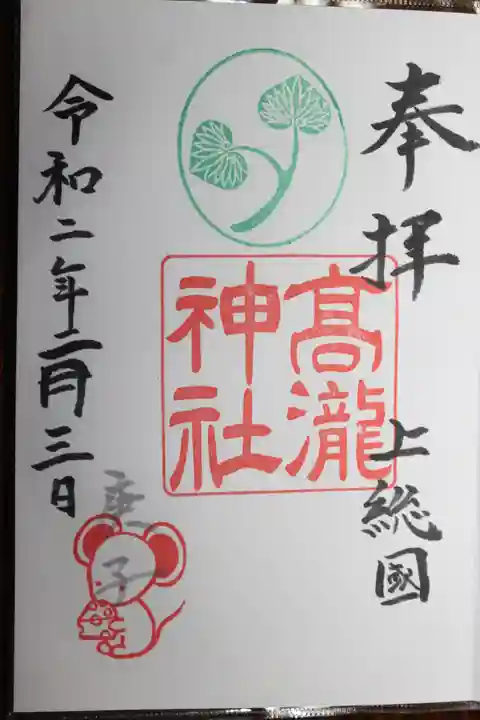 奉拝
上総國
髙瀧
神社
庚子
令和二年二月三日